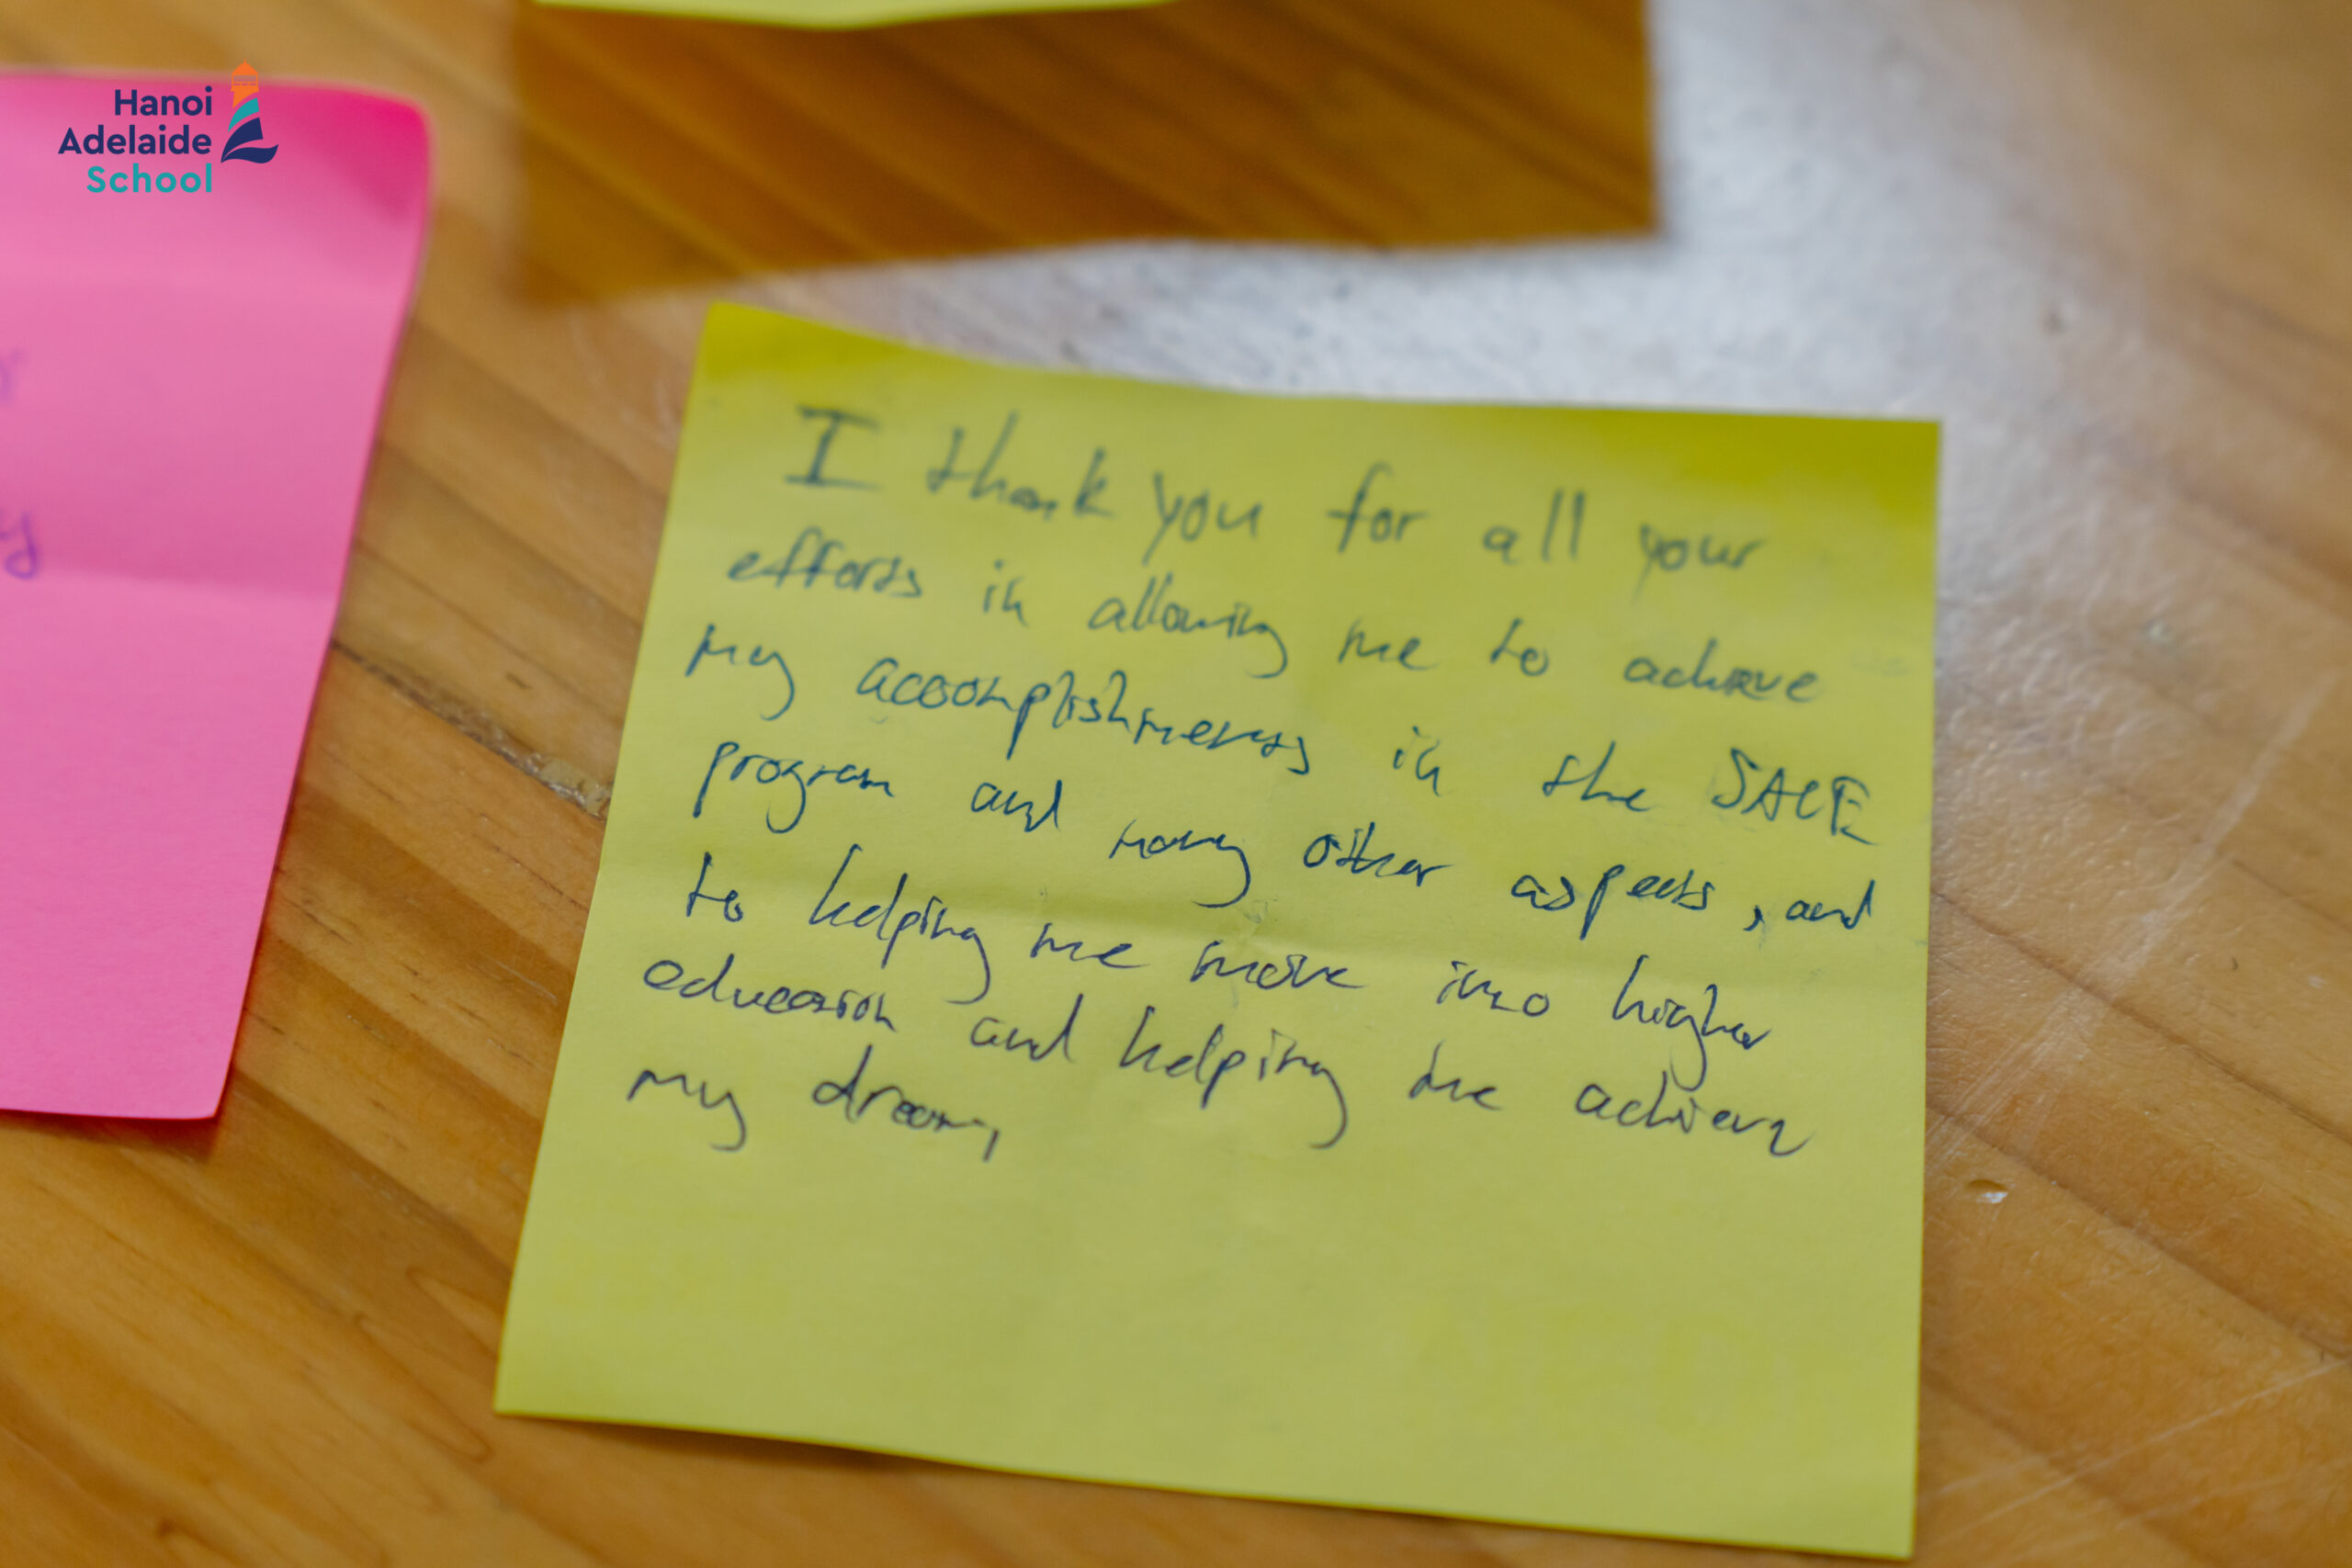 Hanoi
Adelaide
School
I thank you for all your
efforts in allowing me to achieve
my accomplishments in the SACE
program and many other aspects, and
to helping me move into higher
education and helping me achieve
my dream,
y